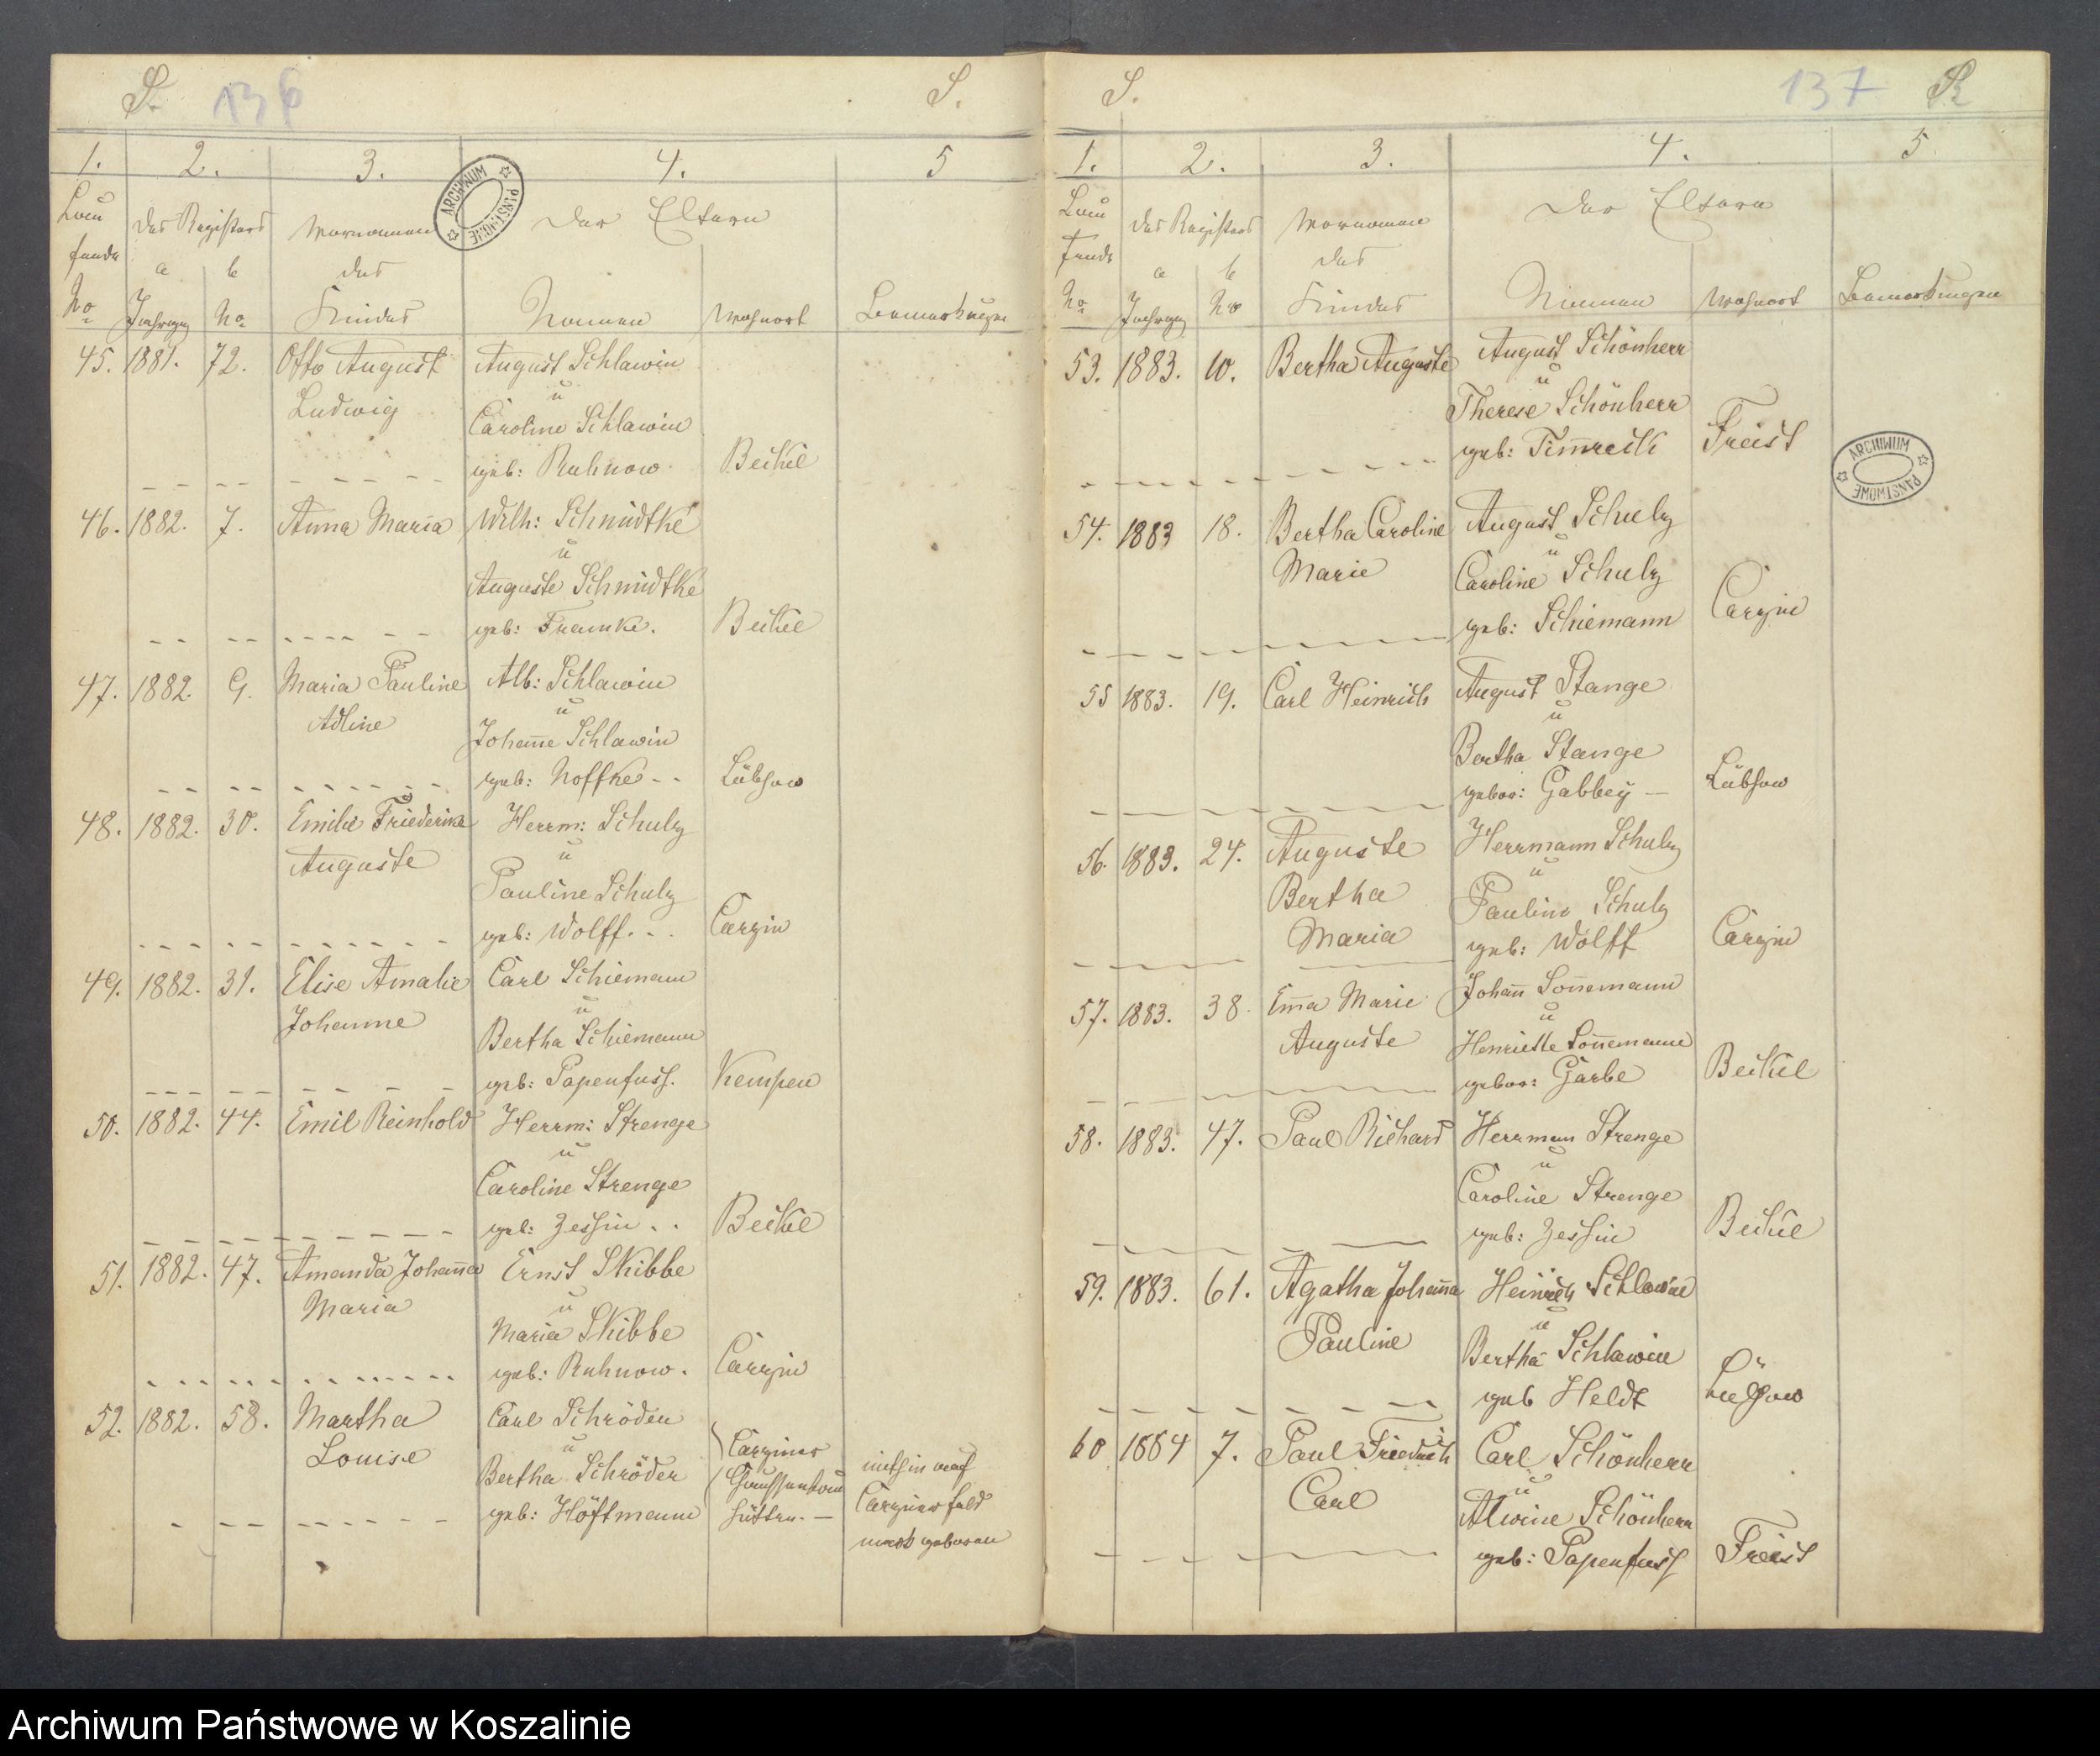 S. 136 S.
1. 2. 3. 4. 5
Lau
fende
No
des Registers
a b
Jahrgang No
Vornamen
des
Kindes
Der Eltern
Namen Wohnort Bemerkungen
ARCHIWUM PAŃSTWOWE
45. 1881. 72. Otto August August Schlawin
Ludwig u
Caroline Schlawin
geb: Ruhnow. Beikel
46. 1882. 7. Anna Maria Wilh: Schmidtke
u
Auguste Schmidtke
geb: Framke. Beikel
47. 1882. 9. Maria Pauline Alb: Schlawin
Adline u
Johanne Schlawin
geb: Noffke Lübsow
48. 1882. 30. Emilie Friederike Herrm: Schulz
Auguste u
Pauline Schulz
geb: Wolff. Carzin
49. 1882. 31. Elise Amalie Carl Schiemann
Johanne u
Bertha Schiemann
geb: Papenfuss. Kempen
50. 1882. 44. Emil Reinhold Herrm: Strenge
u
Caroline Strenge
geb: Zessin Beikel
51. 1882. 47. Amanda Johanna Ernst Skibbe
Maria u
Maria Skibbe
geb: Ruhnow. Carzin
52. 1882. 58. Martha Carl Schröder
Louise u
Bertha Schröder
geb: Höftmann
Carziner
Chausseehaus
Carzinerfeld
geboren
S. 137 S.
1. 2. 3. 4. 5
Lau
fende
No
des Registers
a b
Jahrgang No
Vornamen
des
Kindes
Der Eltern
Namen Wohnort Bemerkungen
ARCHIWUM PAŃSTWOWE
53. 1883. 10. Bertha Auguste August Schönherr
u
Therese Schönherr
geb: Tim̅reck Freist
54. 1883 18. Bertha Caroline August Schulz
Marie u
Caroline Schulz
geb: Schiemann Carzin
55 1883. 19. Carl Heinrich August Stange
u
Bertha Stange
gebor: Gabbey Lübsow
56. 1883. 24. Auguste Herrmann Schulz
Bertha u
Pauline Schulz
Maria geb: Wolff Carzin
57. 1883. 38. Em̅a Marie Johan̅ Son̅emann
Auguste u
Henriette Son̅emann
gebor: Garbe Beikel
58. 1883. 47. Paul Richard Herrman Strenge
u
Caroline Strenge
geb: Zessin Beikel
59. 1883. 61. Agatha Johan̅a Heinrich Schlawin
Pauline u
Bertha Schlawin
geb Heldt Lübsow
60 1884 7. Paul Friedrich Carl Schönherr
Carl u
Alwine Schönherr
geb: Papenfuss Freist
Archiwum Państwowe w Koszalinie